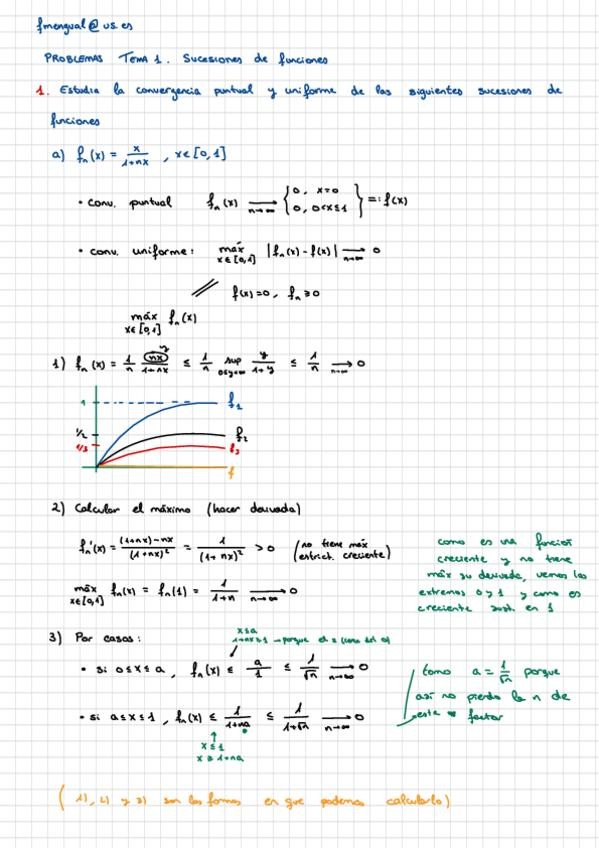 fmengual@us.es
PROBLEMAS TEMA 1. Sucesiones de funciones
1. Estudia la convergencia puntual y uniforme de las siguientes sucesiones de
funciones
a) fₙ(x) = x/(1+nx), x∈[0,1]
• conv. puntual fₙ(x) →(n→∞) {0, x=0; 0, 0<x≤1} =: f(x)
• conv. uniforme: máx(x∈[0,1]) |fₙ(x) - f(x)| →(n→∞) 0
// f(x)=0, fₙ≥0
máx(x∈[0,1]) fₙ(x)
1) fₙ(x) = 1/n · nx/(1+nx) ≤ 1/n sup(0≤y<∞) y/(1+y) ≤ 1/n →(n→∞) 0
y
1 f₁
1/2 f₂
1/3 f₃
f
2) Calcular el máximo (hacer derivada)
fₙ'(x) = ((1+nx)-nx)/(1+nx)² = 1/(1+nx)² > 0 (no tiene máx estrict. creciente)
máx(x∈[0,1]) fₙ(x) = fₙ(1) = 1/(1+n) →(n→∞) 0
como es una función
creciente y no tiene
máx su derivada, vemos los
extremos 0 y 1 y como es
creciente en 1
3) Por casos:
x≤a
1+nx≥1 → porque el x
• si 0≤x≤a, fₙ(x) ≤ a/1 ≤ 1/√n →(n→∞) 0
• si a≤x≤1, fₙ(x) ≤ 1/(1+na) ≤ 1/(1+√n) →(n→∞) 0
x≤1
x≥1+na
tomo a = 1/√n porque
así no pierdo la n de
este factor
(1), 2) y 3) son las formas en que podemos calcularlo)